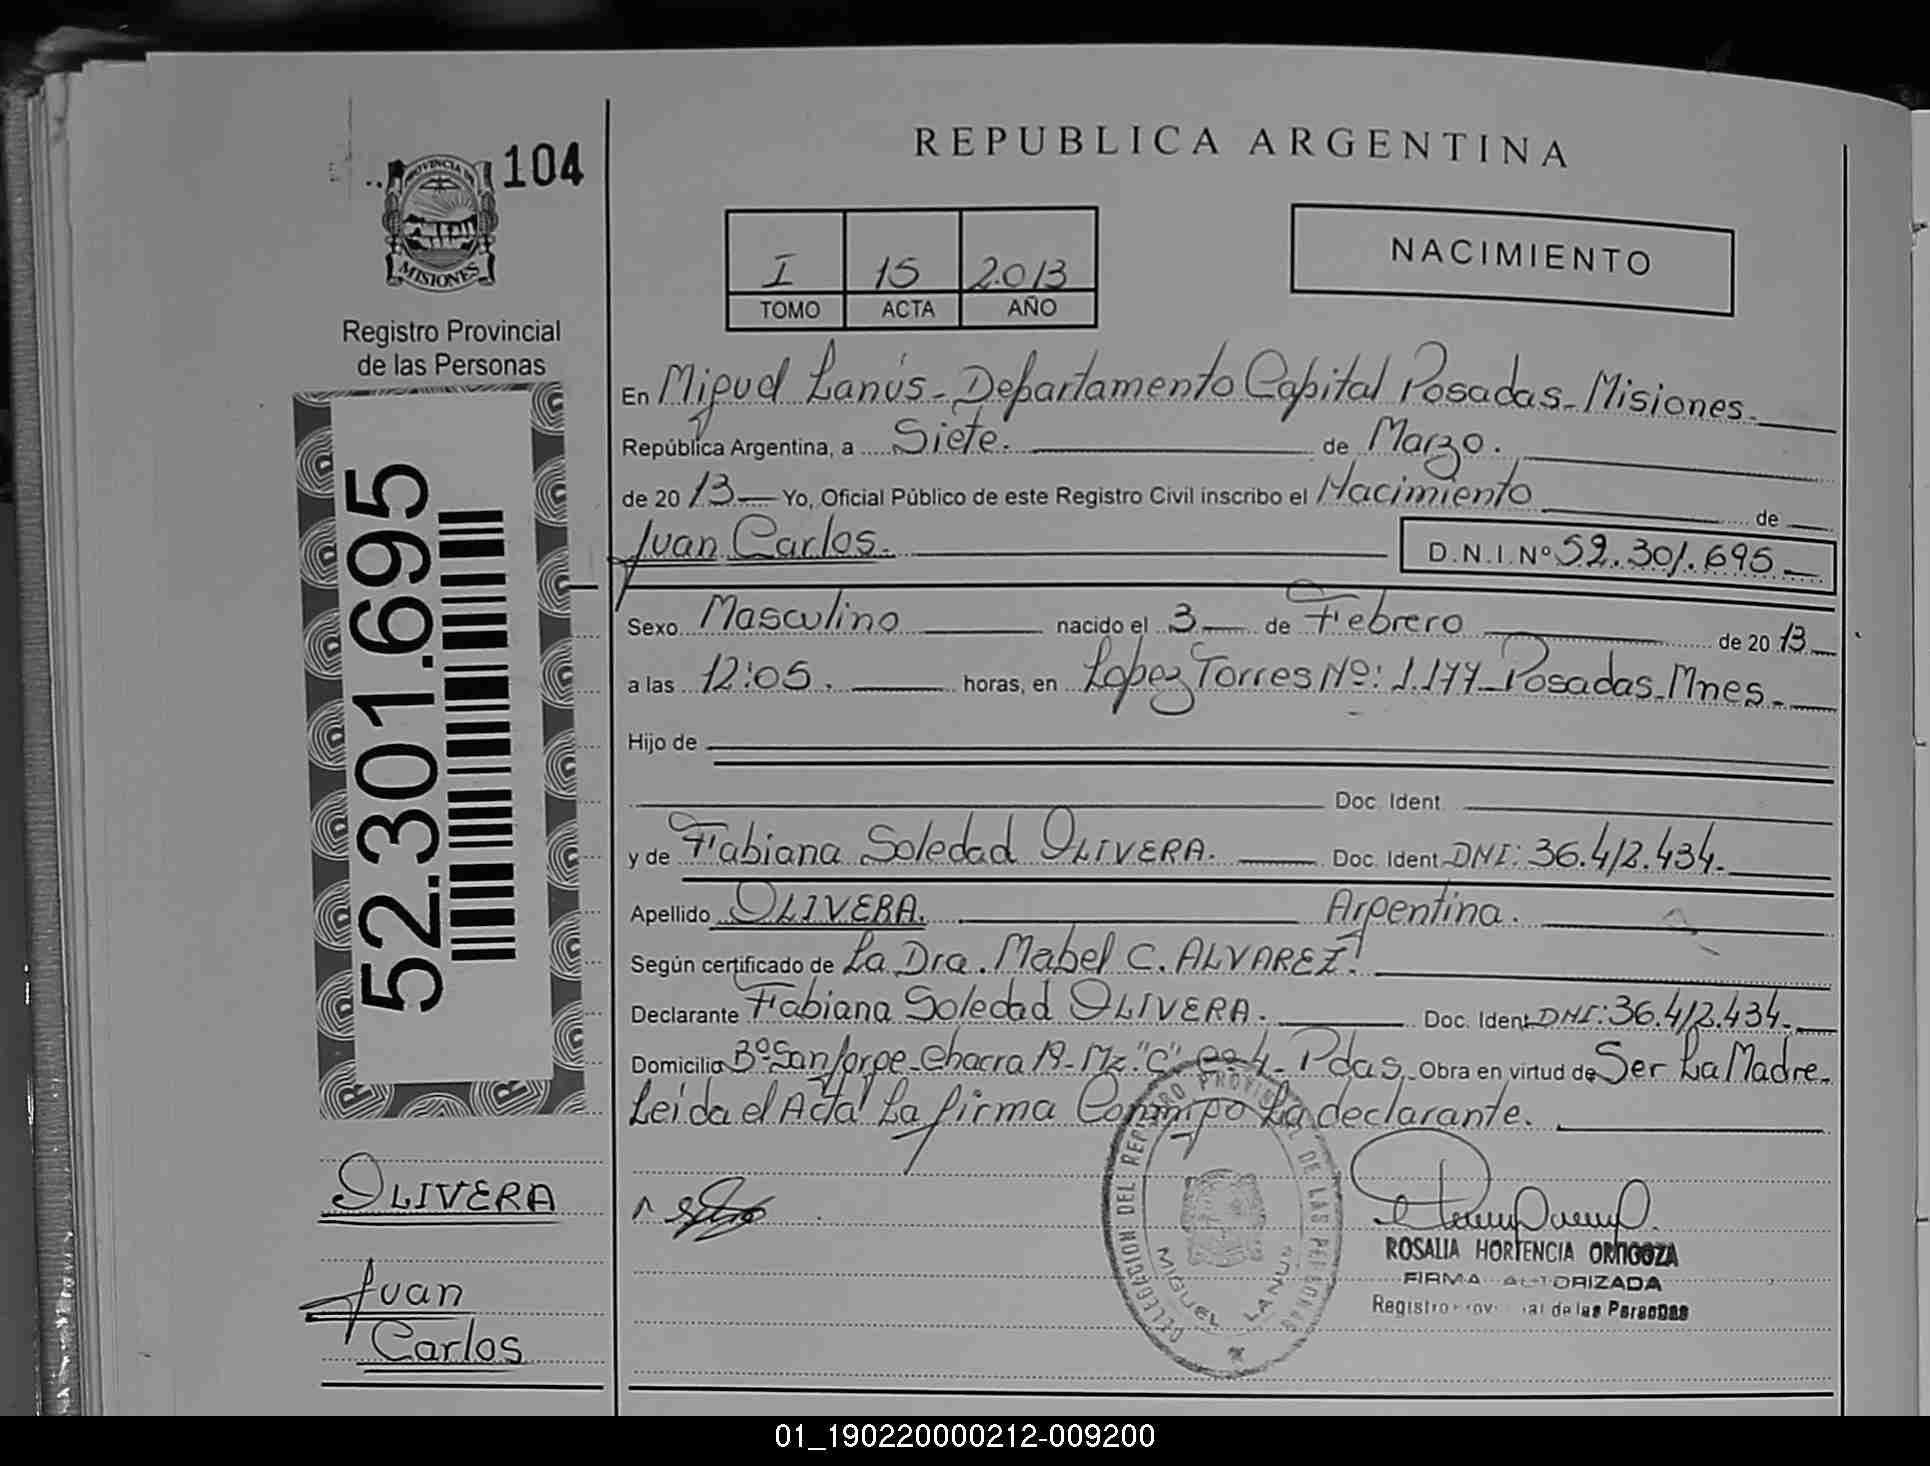 104
PROVINCIA DE
MISIONES
Registro Provincial
de las Personas
52.301.695
REPUBLICA ARGENTINA
I 15 2013
TOMO ACTA AÑO
NACIMIENTO
En Miguel Lanús - Departamento Capital Posadas - Misiones.
República Argentina, a Siete. de Marzo.
de 20 13 Yo, Oficial Público de este Registro Civil inscribo el Nacimiento de
Juan Carlos. D.N.I. Nº 52.301.695
Sexo Masculino nacido el 3 de Febrero de 20 13
a las 12:05. horas, en Lopez Torres Nº: 1.177 - Posadas - Mnes -
Hijo de
Doc. Ident.
y de Fabiana Soledad OLIVERA. Doc. Ident. DNI: 36.412.434.
Apellido OLIVERA. Argentina.
Según certificado de La Dra. Mabel C. ALVAREZ.
Declarante Fabiana Soledad OLIVERA. Doc. Ident. DNI: 36.412.434.
Domicilio Bº San Jorge - Chacra 19 - Mz. "C" Cs 4 - Pdas. Obra en virtud de Ser La Madre.
Leída el Acta La firma Conmigo La declarante.
OLIVERA
Juan
Carlos
DELEGACION DEL REGISTRO PROVINCIAL DE LAS PERSONAS
MIGUEL LANUS
ROSALIA HORTENCIA ORTIGOZA
FIRMA AUTORIZADA
Registro Provincial de las Personas
01_190220000212-009200